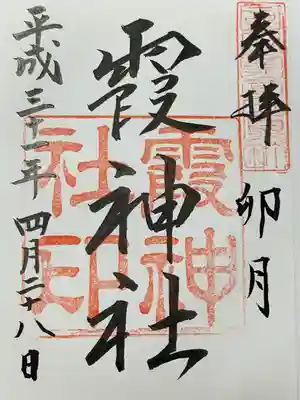 奉拝
卯月
霞神社
霞神社印
平成三十一年四月二十八日